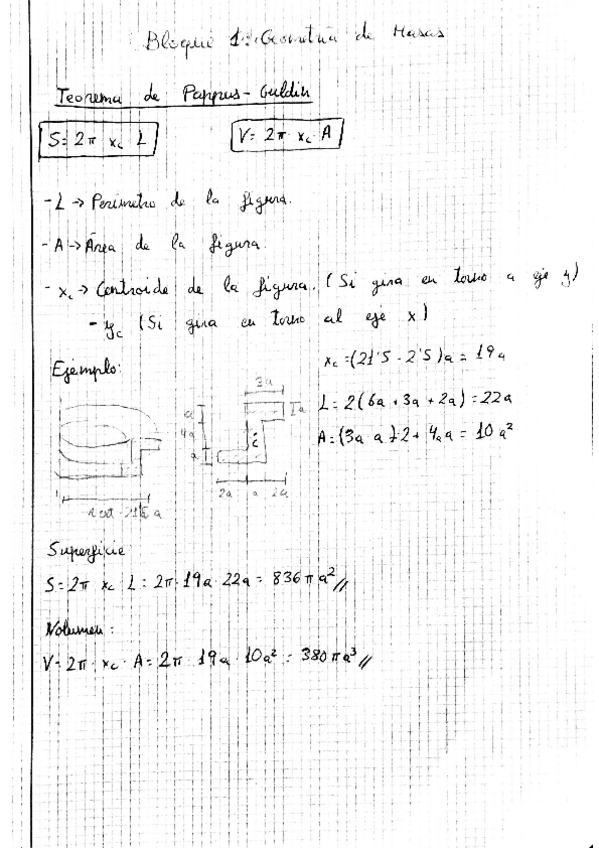 Bloque 1: Geometría de Masas
Teorema de Pappus-Guldin
S= 2π x꜀ L
V= 2π x꜀ A
- L → Perímetro de la figura.
- A → Área de la figura.
- x꜀ → Centroide de la figura. (Si gira en torno a eje y)
- y꜀ (Si gira en torno al eje x)
Ejemplo:
x꜀ = (21'5 - 2'5)a = 19a
L = 2(6a + 3a + 2a) = 22a
A = (3a a) 2 + 4a a = 10a²
3a
a
4a
a
a
c
2a a 2a
21'5 a
Superficie
S = 2π x꜀ L = 2π · 19a 22a = 836πa² //
Volumen:
V = 2π · x꜀ · A = 2π 19a 10a² = 380πa³ //